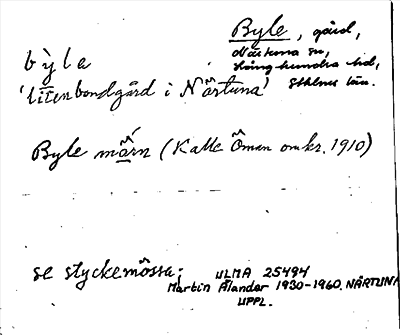 Byle, gård,
Närtuna sn,
Långhundra hd,
Sthlms län.
byle
'liten bondgård i Närtuna'
Byle mörn (Kalle Öman omkr. 1910)
se styckemössa;
ULMA 25494
Martin Ålander 1930-1960. NÄRTUNA
UPPL.